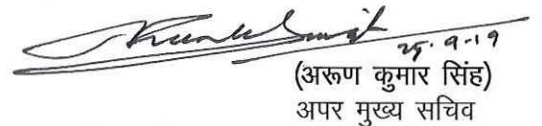 25.9.19
(अरूण कुमार सिंह)
अपर मुख्य सचिव